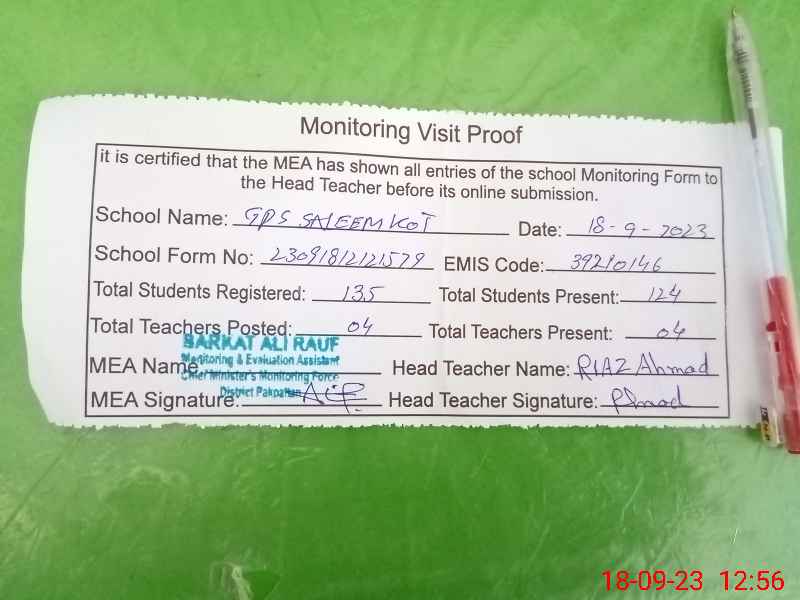 Monitoring Visit Proof
it is certified that the MEA has shown all entries of the school Monitoring Form to
the Head Teacher before its online submission.
School Name: GPS SALEEM KOT Date: 18-9-2023
School Form No: 23091812121579 EMIS Code: 39210146
Total Students Registered: 135 Total Students Present: 124
Total Teachers Posted: 04 Total Teachers Present: 04
BARKAT ALI RAUF
Monitoring & Evaluation Assistant
MEA Name Head Teacher Name: RIAZ Ahmad
Chief Minister's Monitoring Force
District Pakpattan
MEA Signature: Head Teacher Signature:
18-09-23 12:56